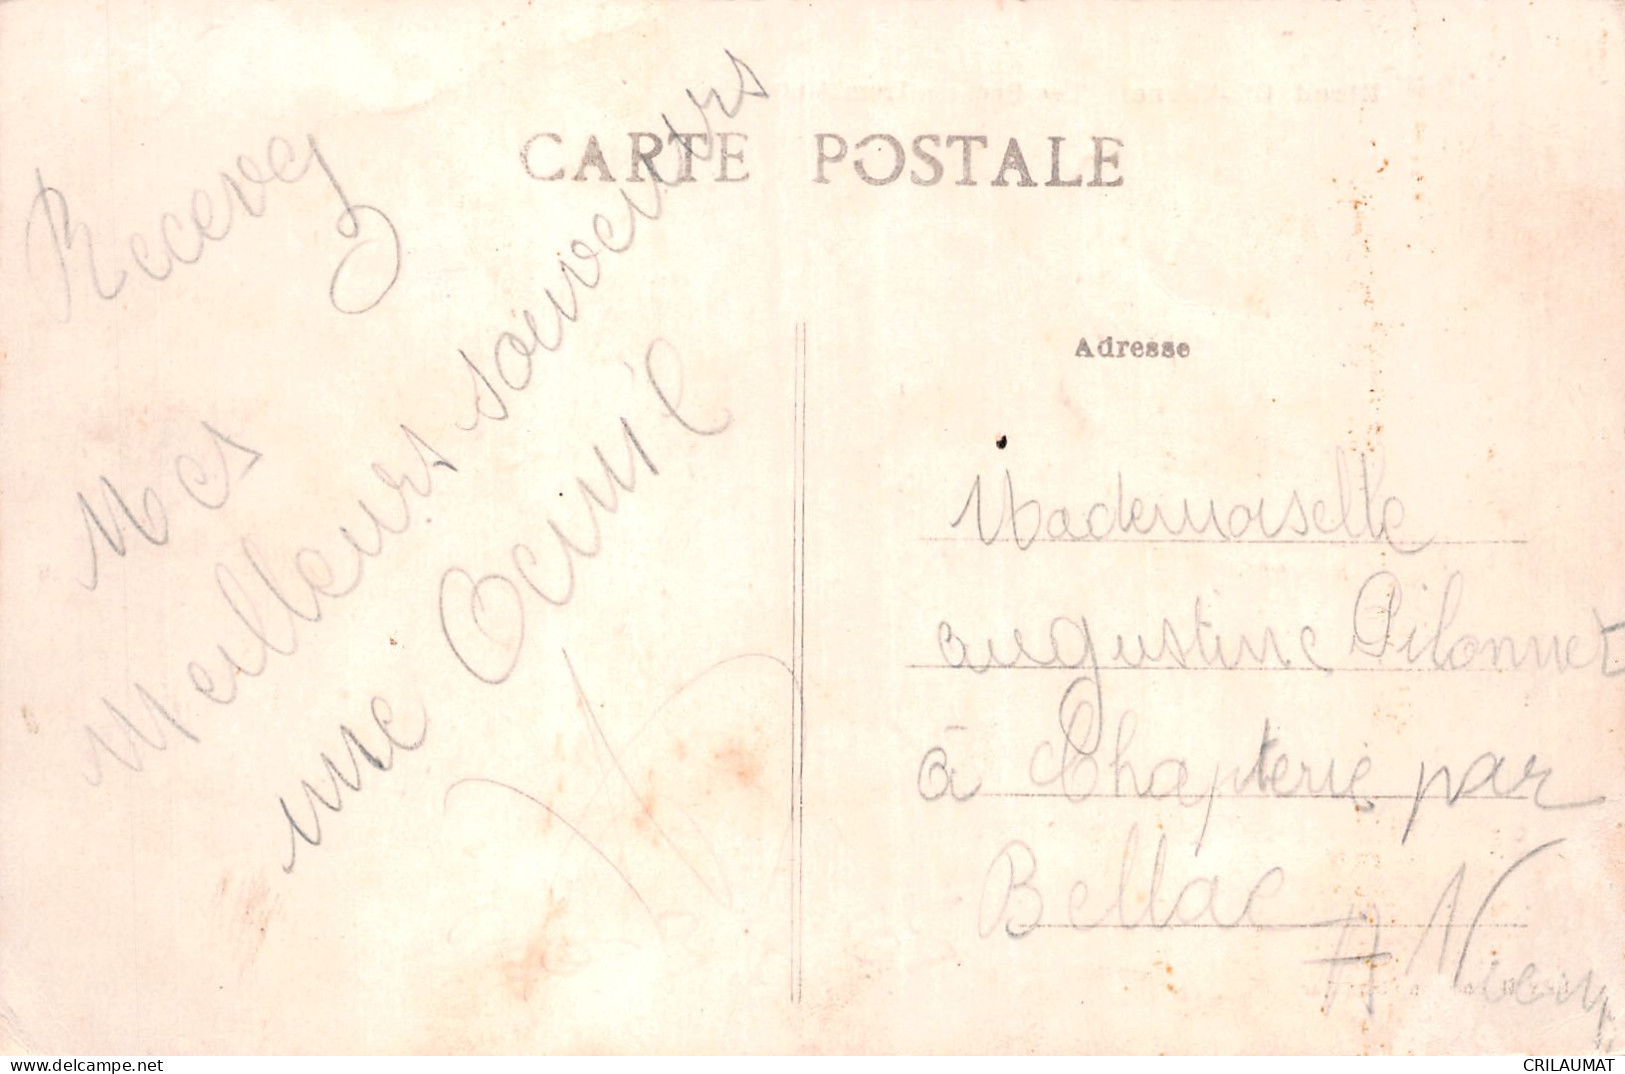 CARTE POSTALE
Recevez
Mes
Meilleurs souvenirs
une Oemil
Adresse
Mademoiselle
augustine Pilonnet
à Chapterie par
Bellac
CRILAUMAT